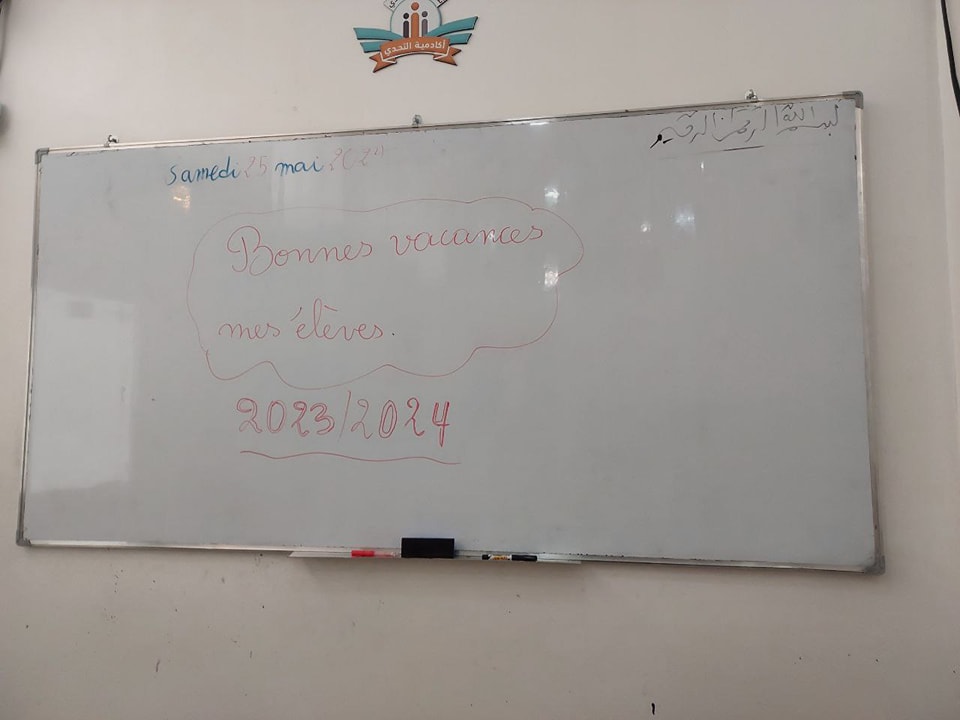 أكادمية التحدي
بسم الله الرحمن الرحيم
samedi 25 mai 2024
Bonnes vacances
mes élèves.
2023/2024